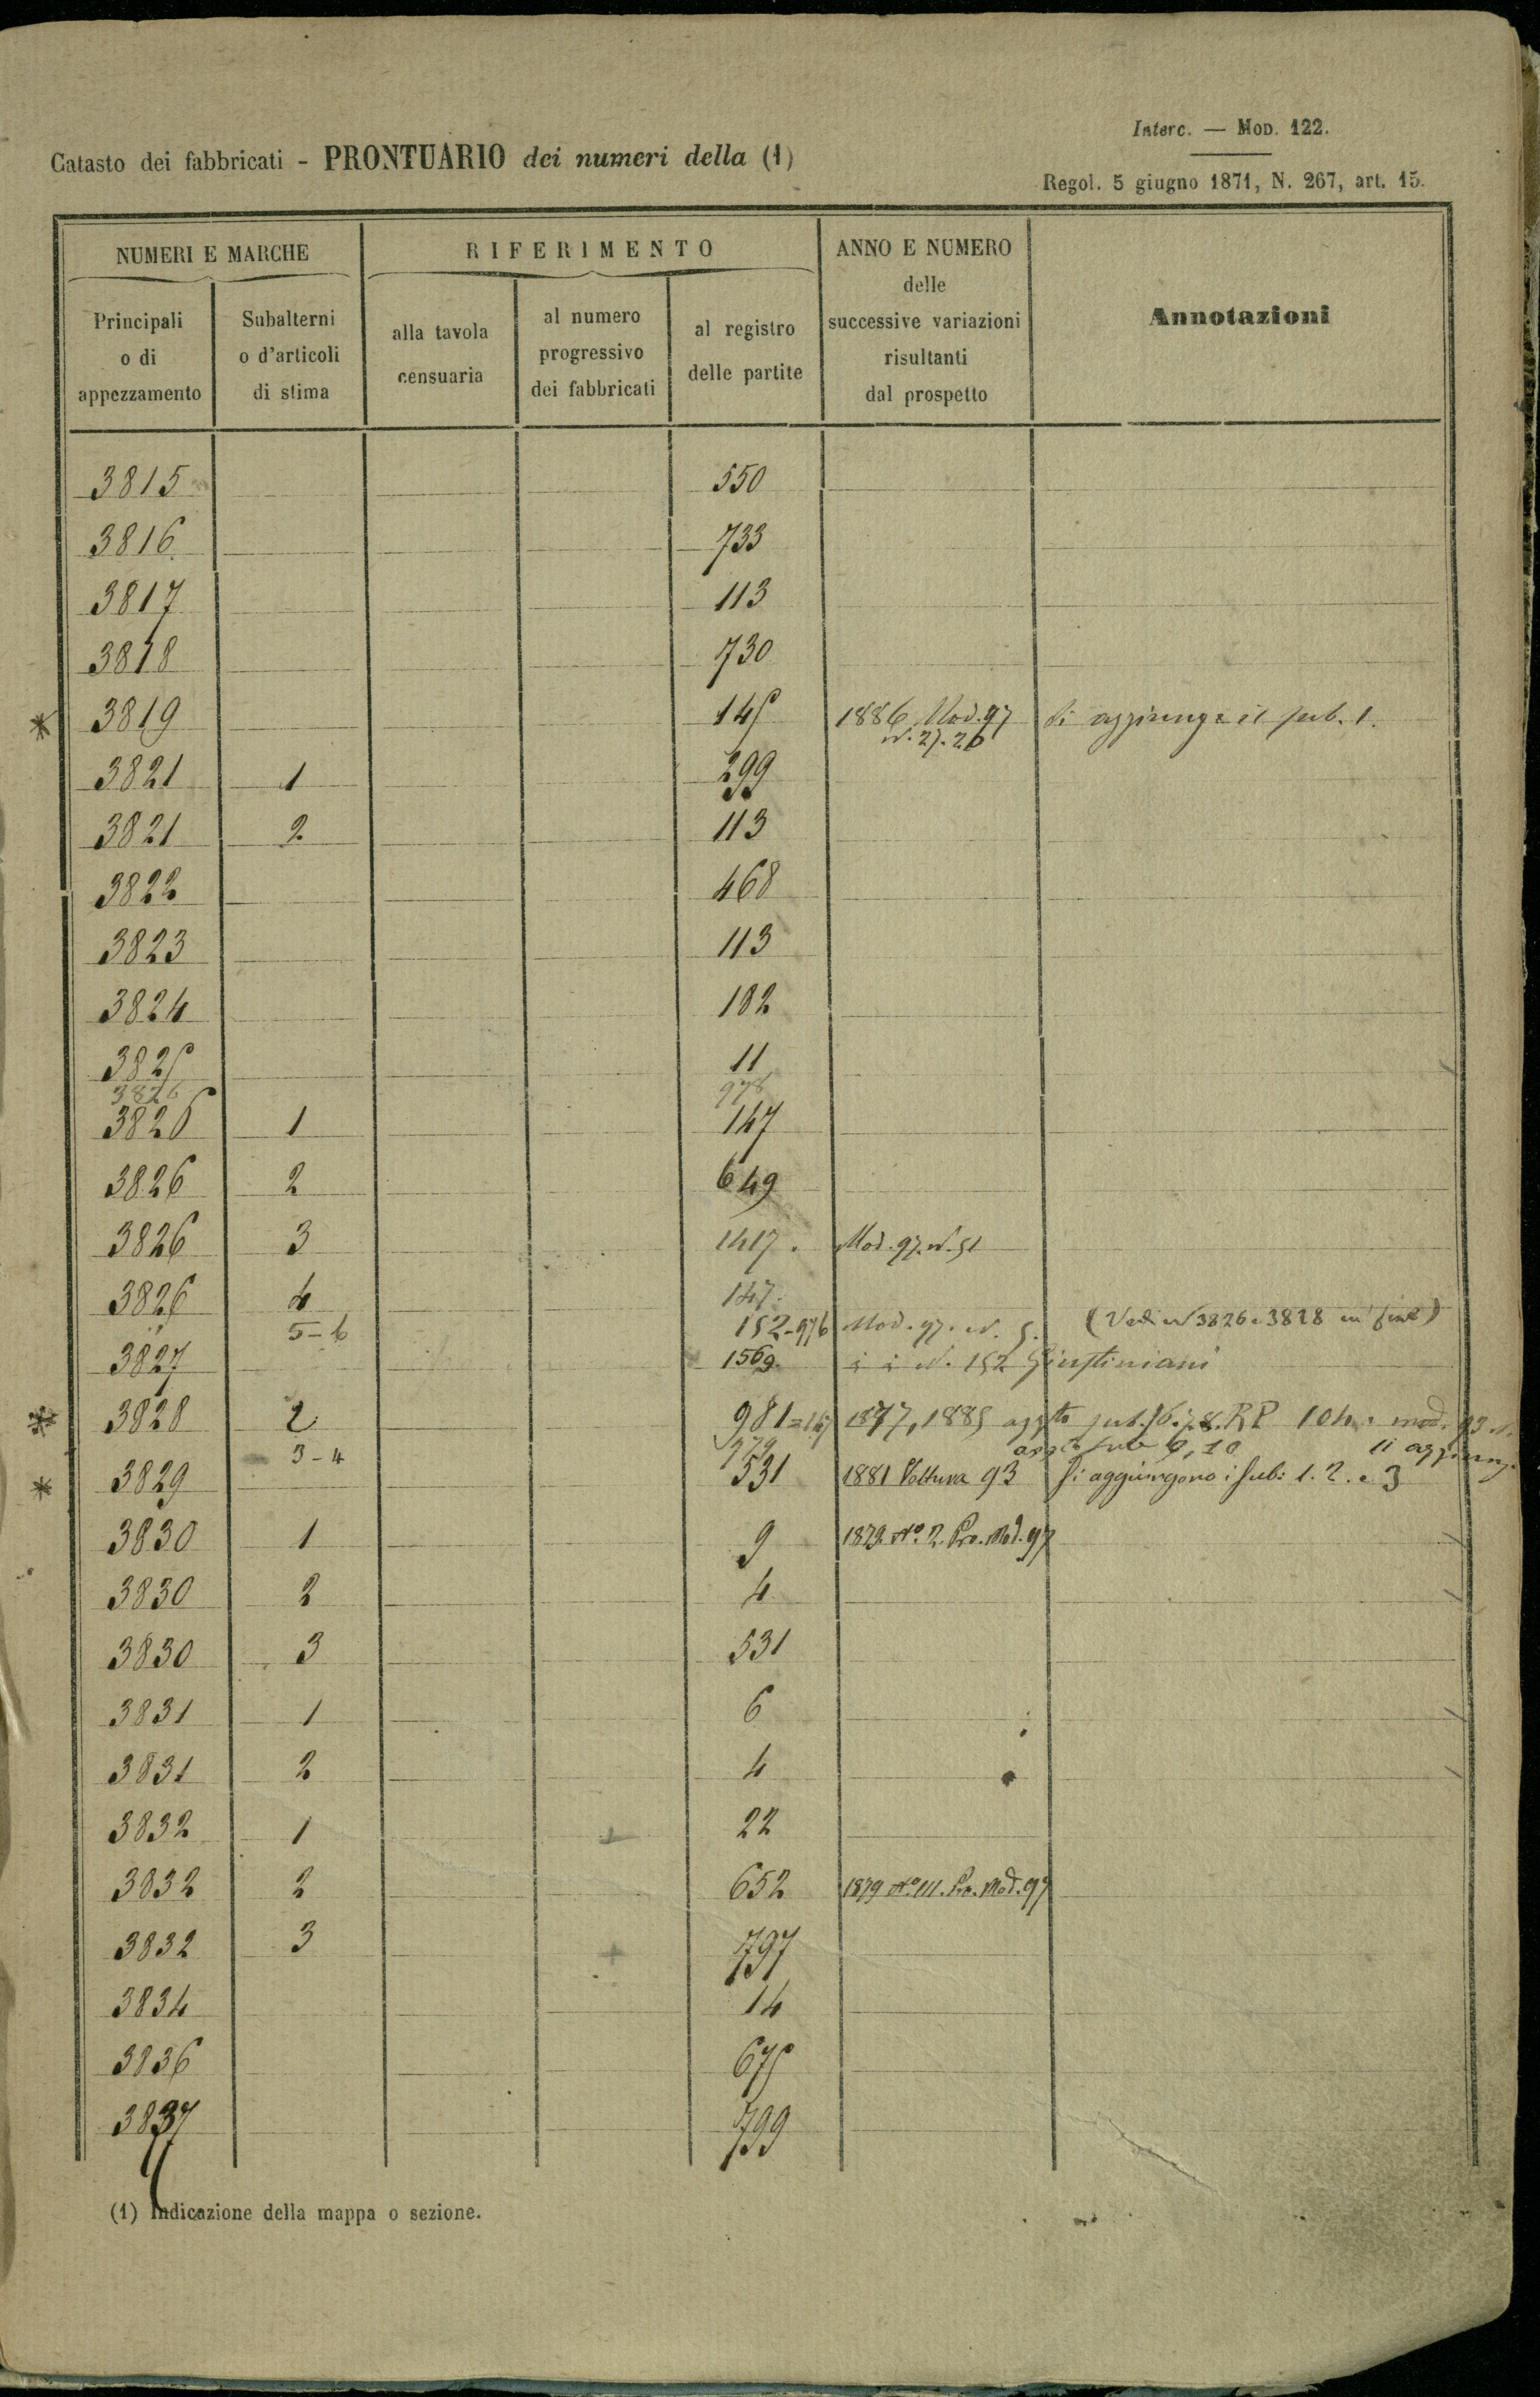 Interc. — MOD. 122.
Catasto dei fabbricati - PRONTUARIO dei numeri della (1)
Regol. 5 giugno 1871, N. 267, art. 15.
NUMERI E MARCHE
RIFERIMENTO
ANNO E NUMERO
delle
successive variazioni
risultanti
dal prospetto
Annotazioni
Principali
o di
appezzamento
Subalterni
o d'articoli
di stima
alla tavola
censuaria
al numero
progressivo
dei fabbricati
al registro
delle partite
3815 550
3816 733
3817 113
3818 730
* 3819 145 1886 Mod. 97 Si aggiunge il sub. 1.
3821 1 299
3821 2 113
3822 468
3823 113
3824 182
3825 11
3826 978
3826 1 147
3826 2 649
3826 3 1417. Mod. 97. N. 51
3826 4 147.
5-6 152-976 Mod. 97. N. 5. (Vedi N 3826 e 3828 in fine)
3827 1569. N. 152 Giustiniani
* 3828 2 981=167 1877, 1885 aggto sub. R.P. 104. mod. 93
3-4 979 aggto sub 9, 10 si aggiung.
* 3829 531 1881 Voltura 93 Si aggiungono i sub: 1. 2. e 3
3830 1 9 1879. No. 2. Pro. Mod. 97
3830 2 4
3830 3 531
3831 1 6
3831 2 4
3832 1 22
3832 2 652 1879 No. 111. Pro. Mod. 97
3832 3 797
3834 14
3836 675
3837 799
(1) Indicazione della mappa o sezione.